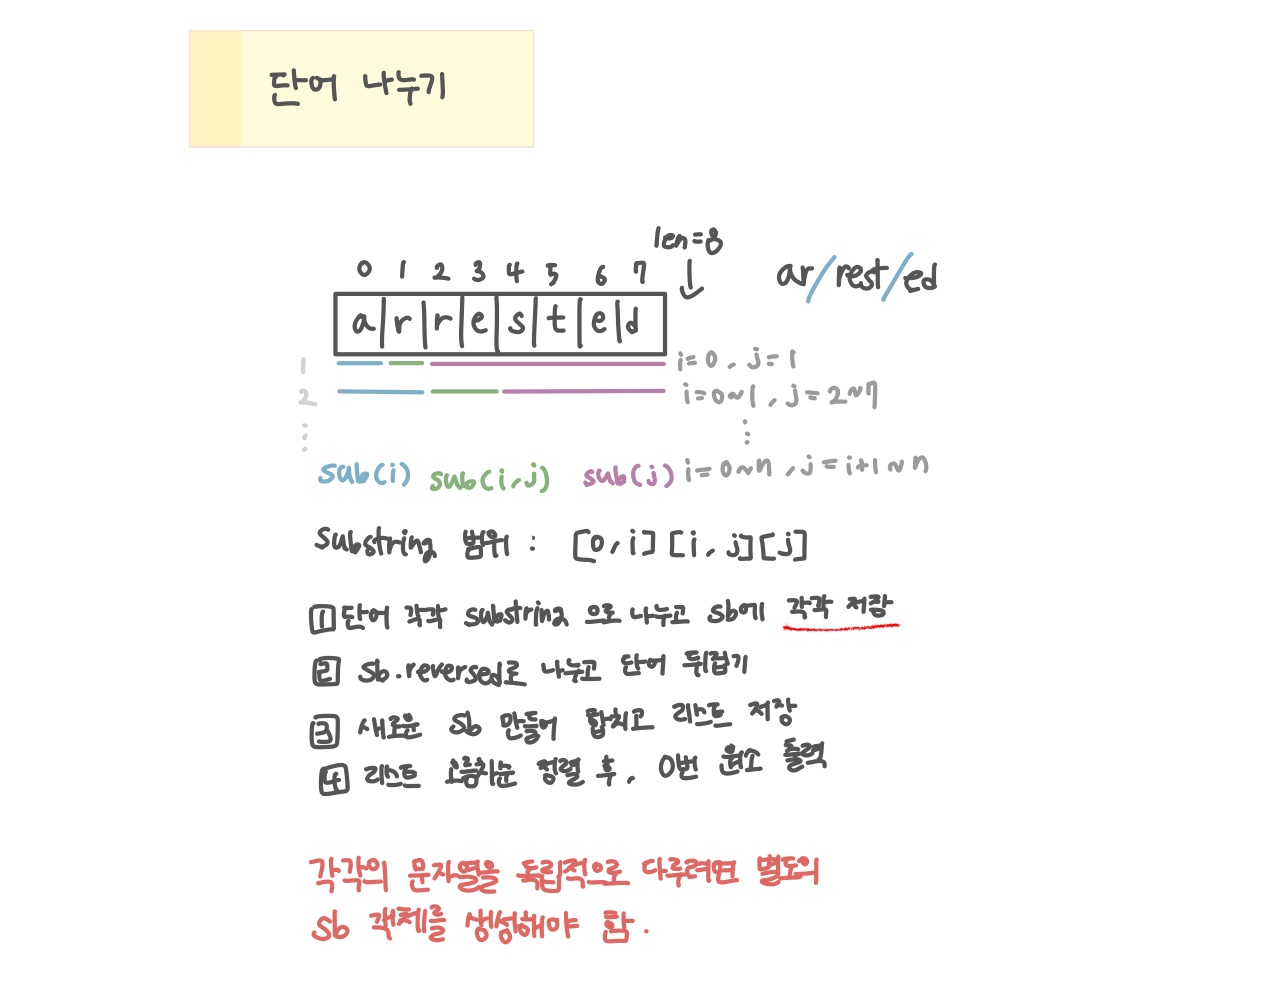 단어 나누기
len=8
0 1 2 3 4 5 6 7
ar/rest/ed
a r r e s t e d
1 i=0, j=1
2 i=0~1, j=2~7
⋮ ⋮
sub(i) sub(i,j) sub(j) i=0~n, j=i+1~n
substring 범위 : [0,i][i,j][j]
1 단어 각각 substring 으로 나누고 sb에 각각 저장
2 sb.reversed로 나누고 단어 뒤집기
3 새로운 sb 만들어 합치고 리스트 저장
4 리스트 오름차순 정렬 후, 0번 원소 출력
각각의 문자열을 독립적으로 다루려면 별도의
sb 객체를 생성해야 함.